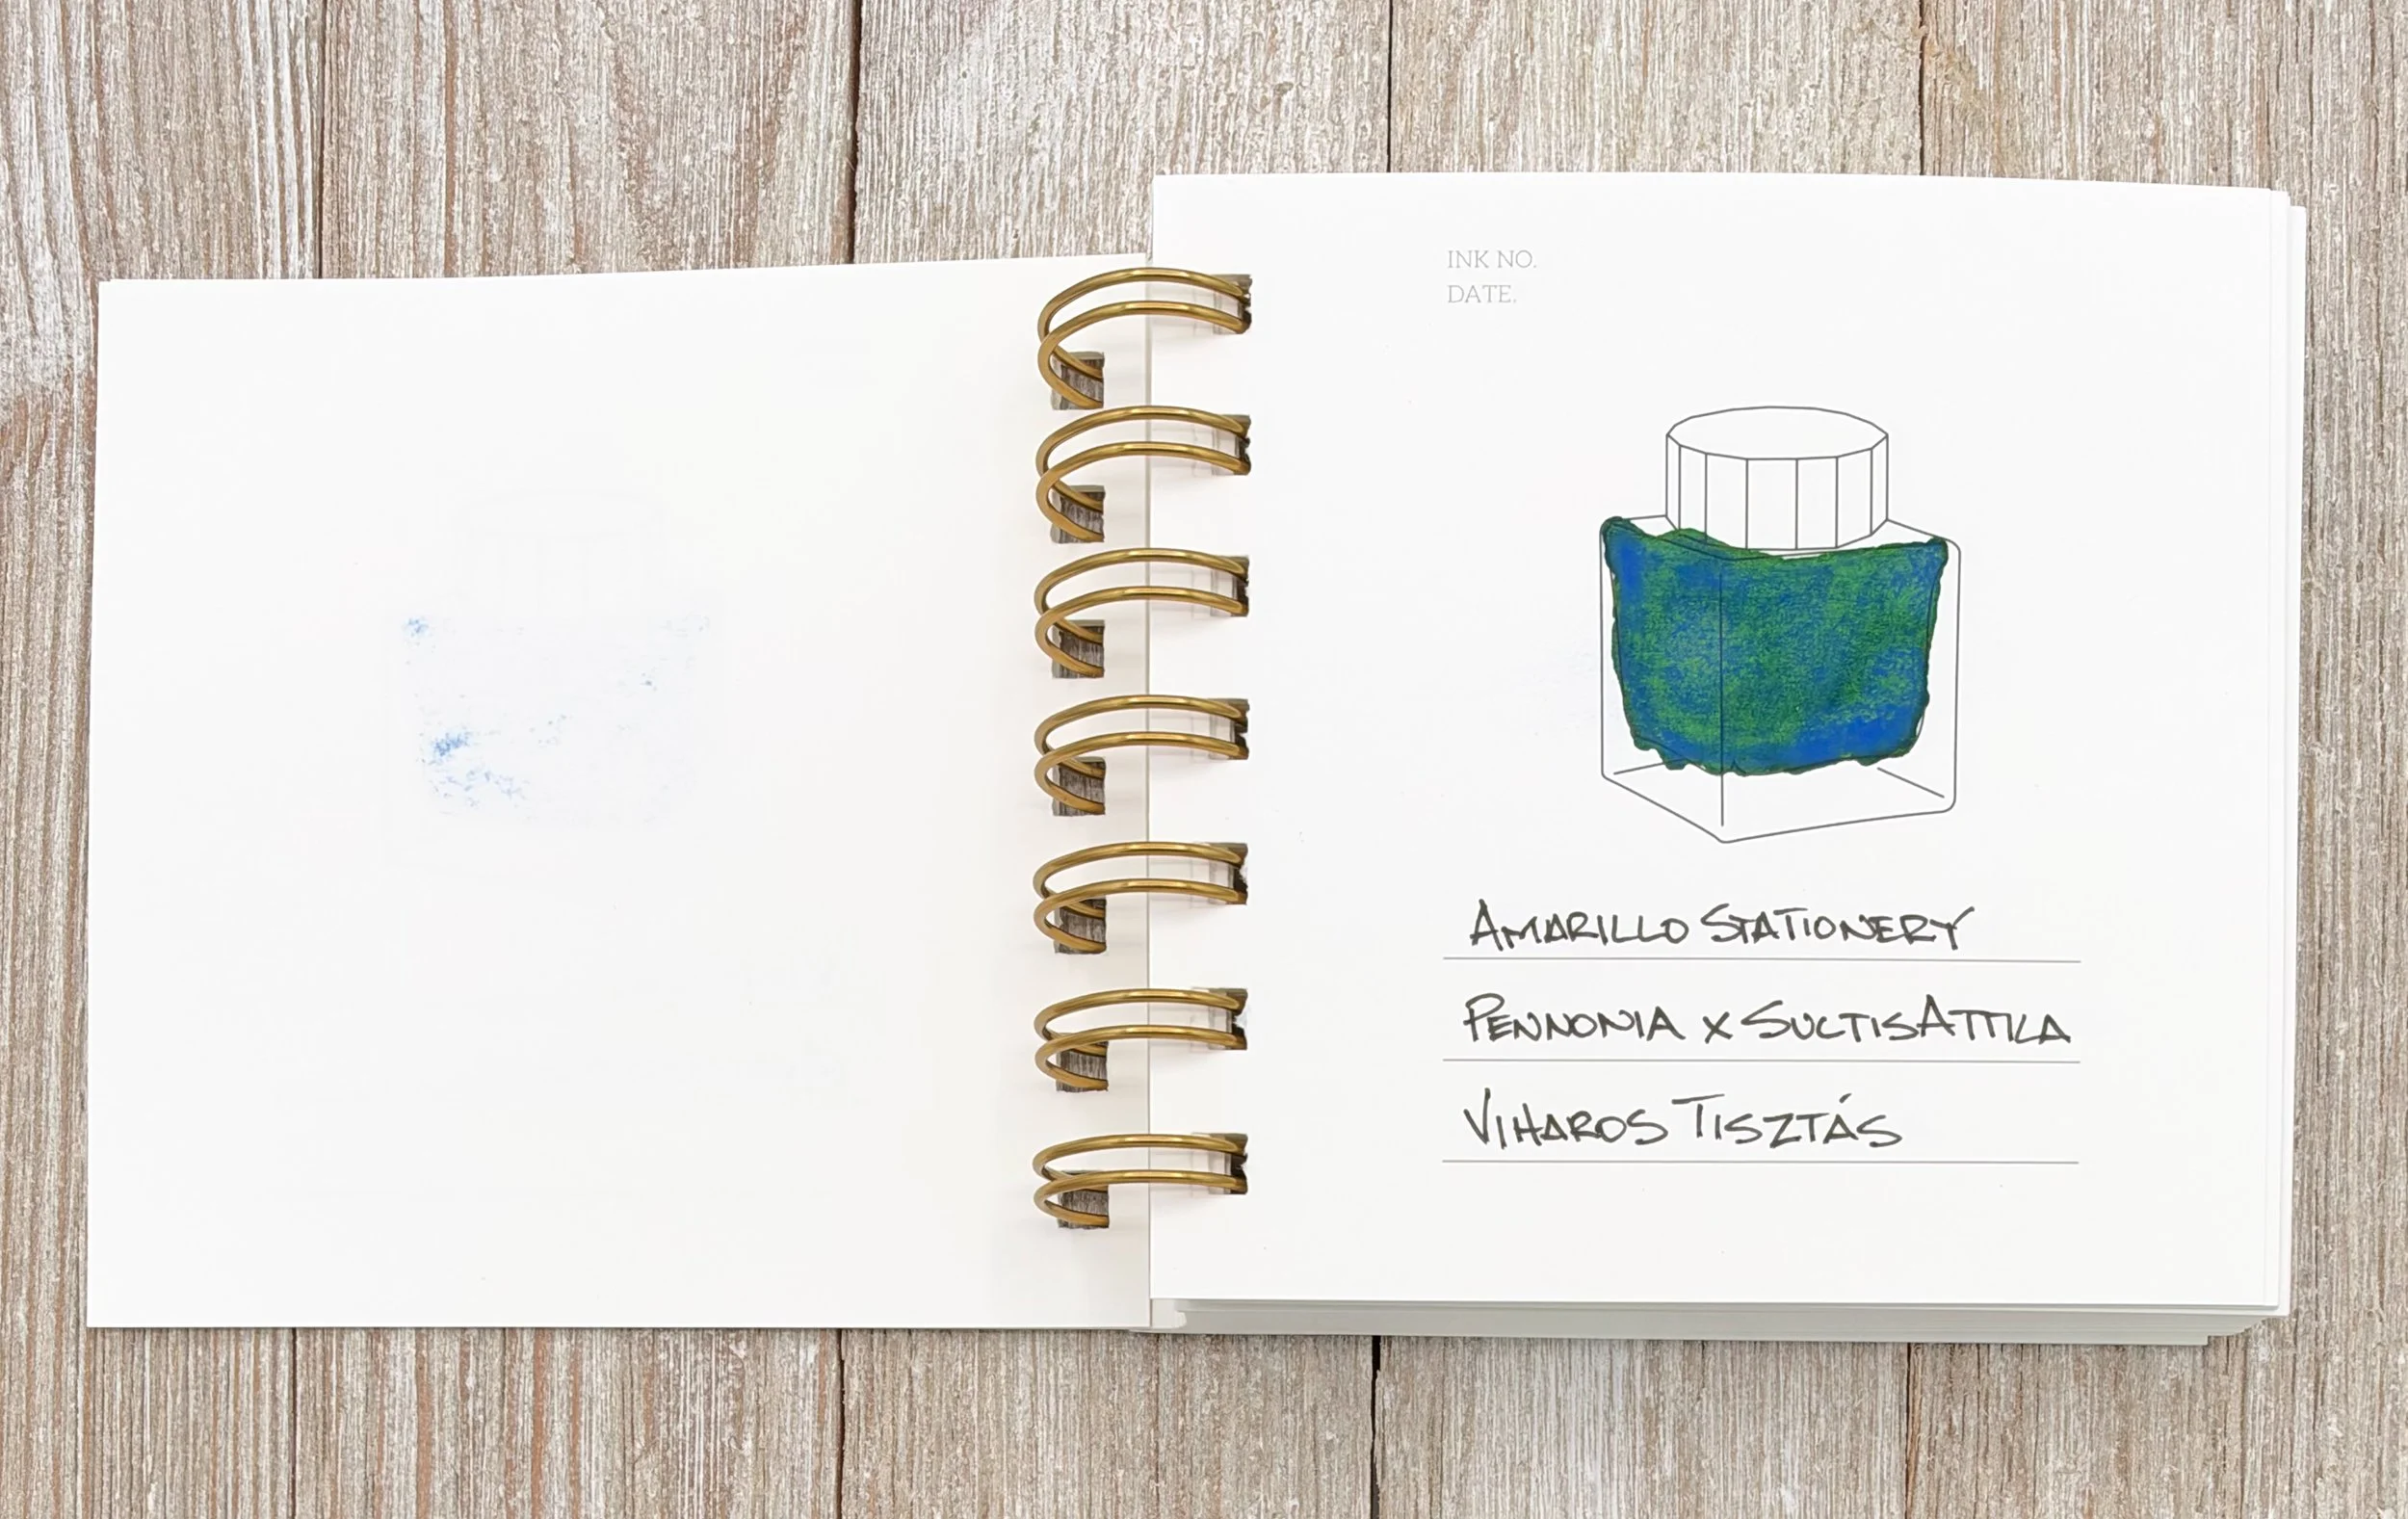 INK NO.
DATE.
AMARILLO STATIONERY
PENNONIA X SULTISATTILA
VIHAROS TISZTÁS